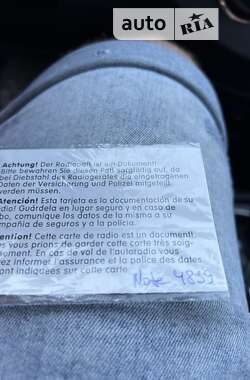 auto RIA
Achtung! Der Radiopaß ist ein Dokument!
Bitte bewahren Sie diesen Paß sorgfältig auf, da
bei Diebstahl des Radiogerätes die eingetragenen
Daten der Versicherung und Polizei mitgeteilt
werden müssen.
Atención! Esta tarjeta es la documentación de su
radio! Guárdela en lugar seguro y en caso de
robo, comunique los datos de la misma a su
compañia de seguros y a la policía.
Attention! Cette carte de radio est un document!
vous prions de garder cette carte très soig-
sement. En cas de vol de l'autoradio vous
rez informer l'assurance et la police des dates
ont indiquées sur cette carte
4899